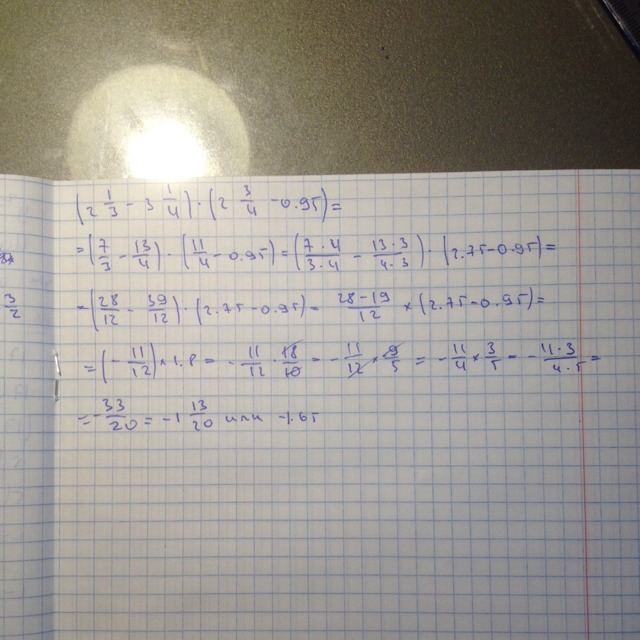 (2 1/3 - 3 1/4) · (2 3/4 - 0.95) =
= (7/3 - 13/4) · (11/4 - 0.95) = (7·4/3·4 - 13·3/4·3) · (2.75 - 0.95) =
= (28/12 - 39/12) · (2.75 - 0.95) = 28-19/12 × (2.75 - 0.95) =
= (-11/12) × 1.8 = -11/12 · 18/10 = -11/12 × 9/5 = -11/4 × 3/5 = -11·3/4·5 =
= -33/20 = -1 13/20 или -1.65
3/2